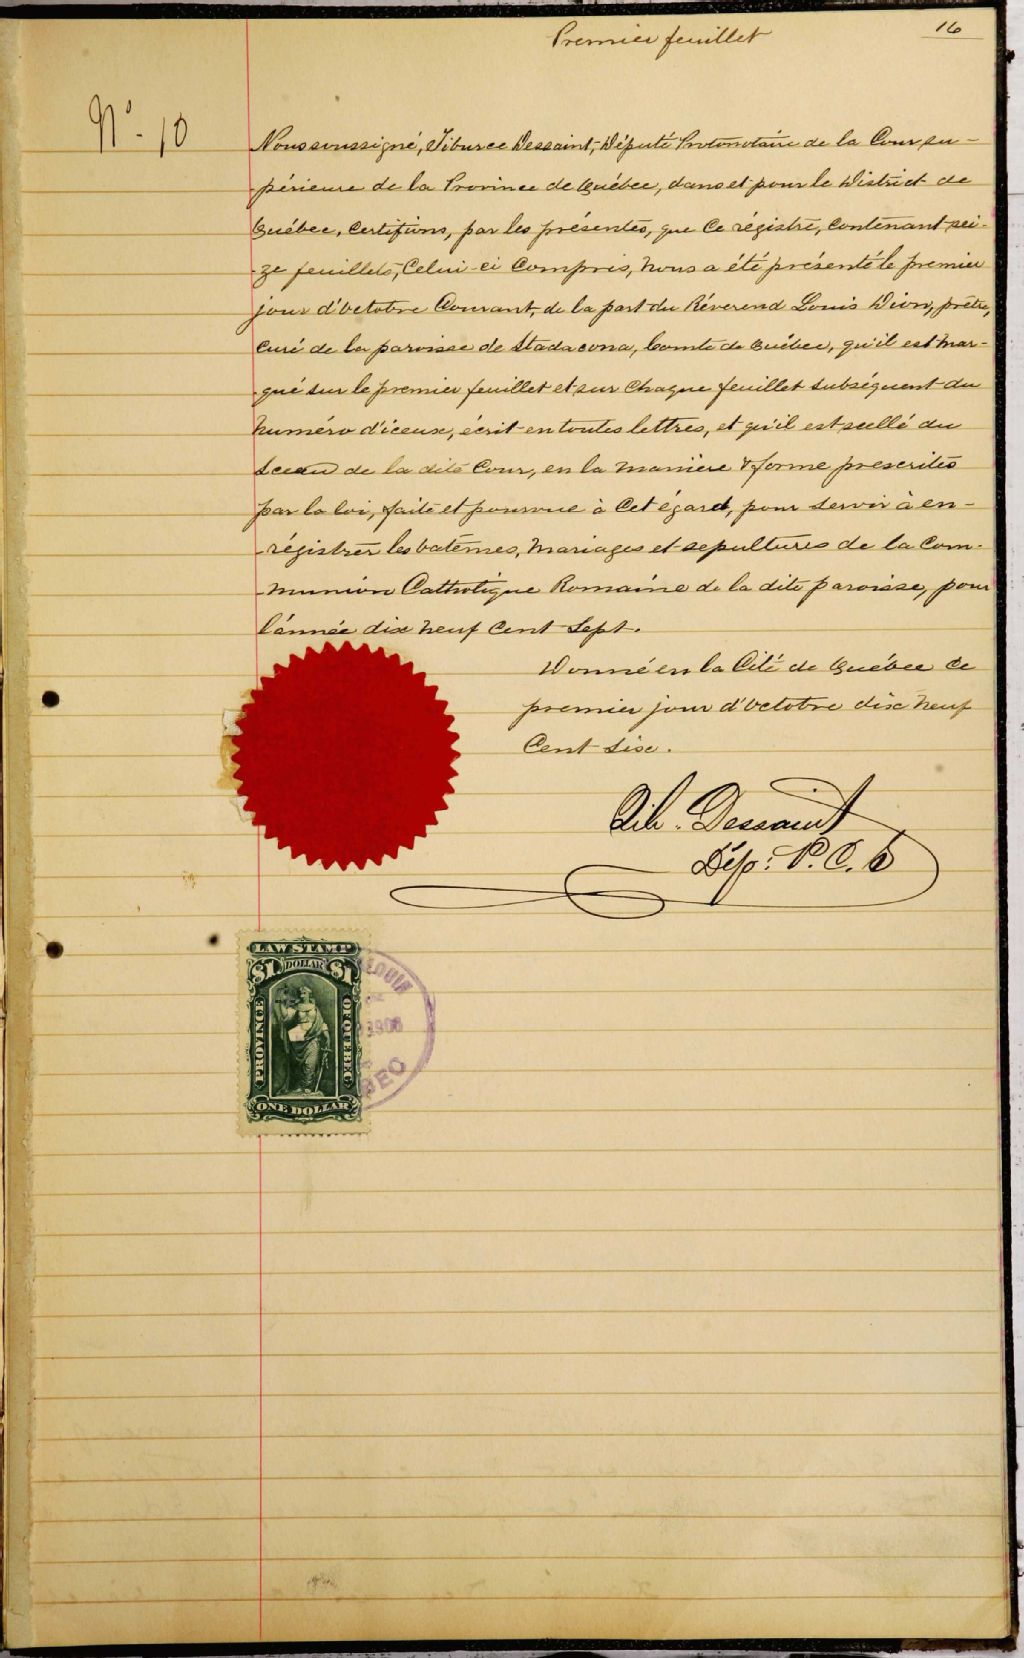 Premier feuillet
16
No - 10
Nous soussigné, Tiburce Dessaint, Député Protonotaire de la Cour su-
périeure de la Province de Québec, dans et pour le District de
Québec, Certifions, par les présentes, que Ce régistre, Contenant sei-
-ze feuillets, Celui-ci Compris, Nous a été présenté le premier
jour d'Octobre Courant, de la part du Révérend Louis Dion, prêtre,
Curé de la paroisse de Stadacona, Comté de Québec, qu'il est Mar-
qué sur le premier feuillet et sur Chaque feuillet subséquent du
Numéro d'iceux, écrit en toutes lettres, et qu'il est scellé du
Sceau de la dite Cour, en la Manière & forme prescrites
par la loi, faite et pourvue à Cet égard, pour servir à en-
-régistrer les batêmes, Mariages et sepultures de la Com-
munion Catholique Romaine de la dite paroisse, pour
l'année dix Neuf Cent Sept.
Donné en la Cité de Québec Ce
premier jour d'Octobre dix Neuf
Cent Six.
Tib. Dessaint
Dép: P. C. S
LAW STAMP
$1 DOLLAR $1
PROVINCE
OF QUEBEC
ONE DOLLAR
1906
BEC